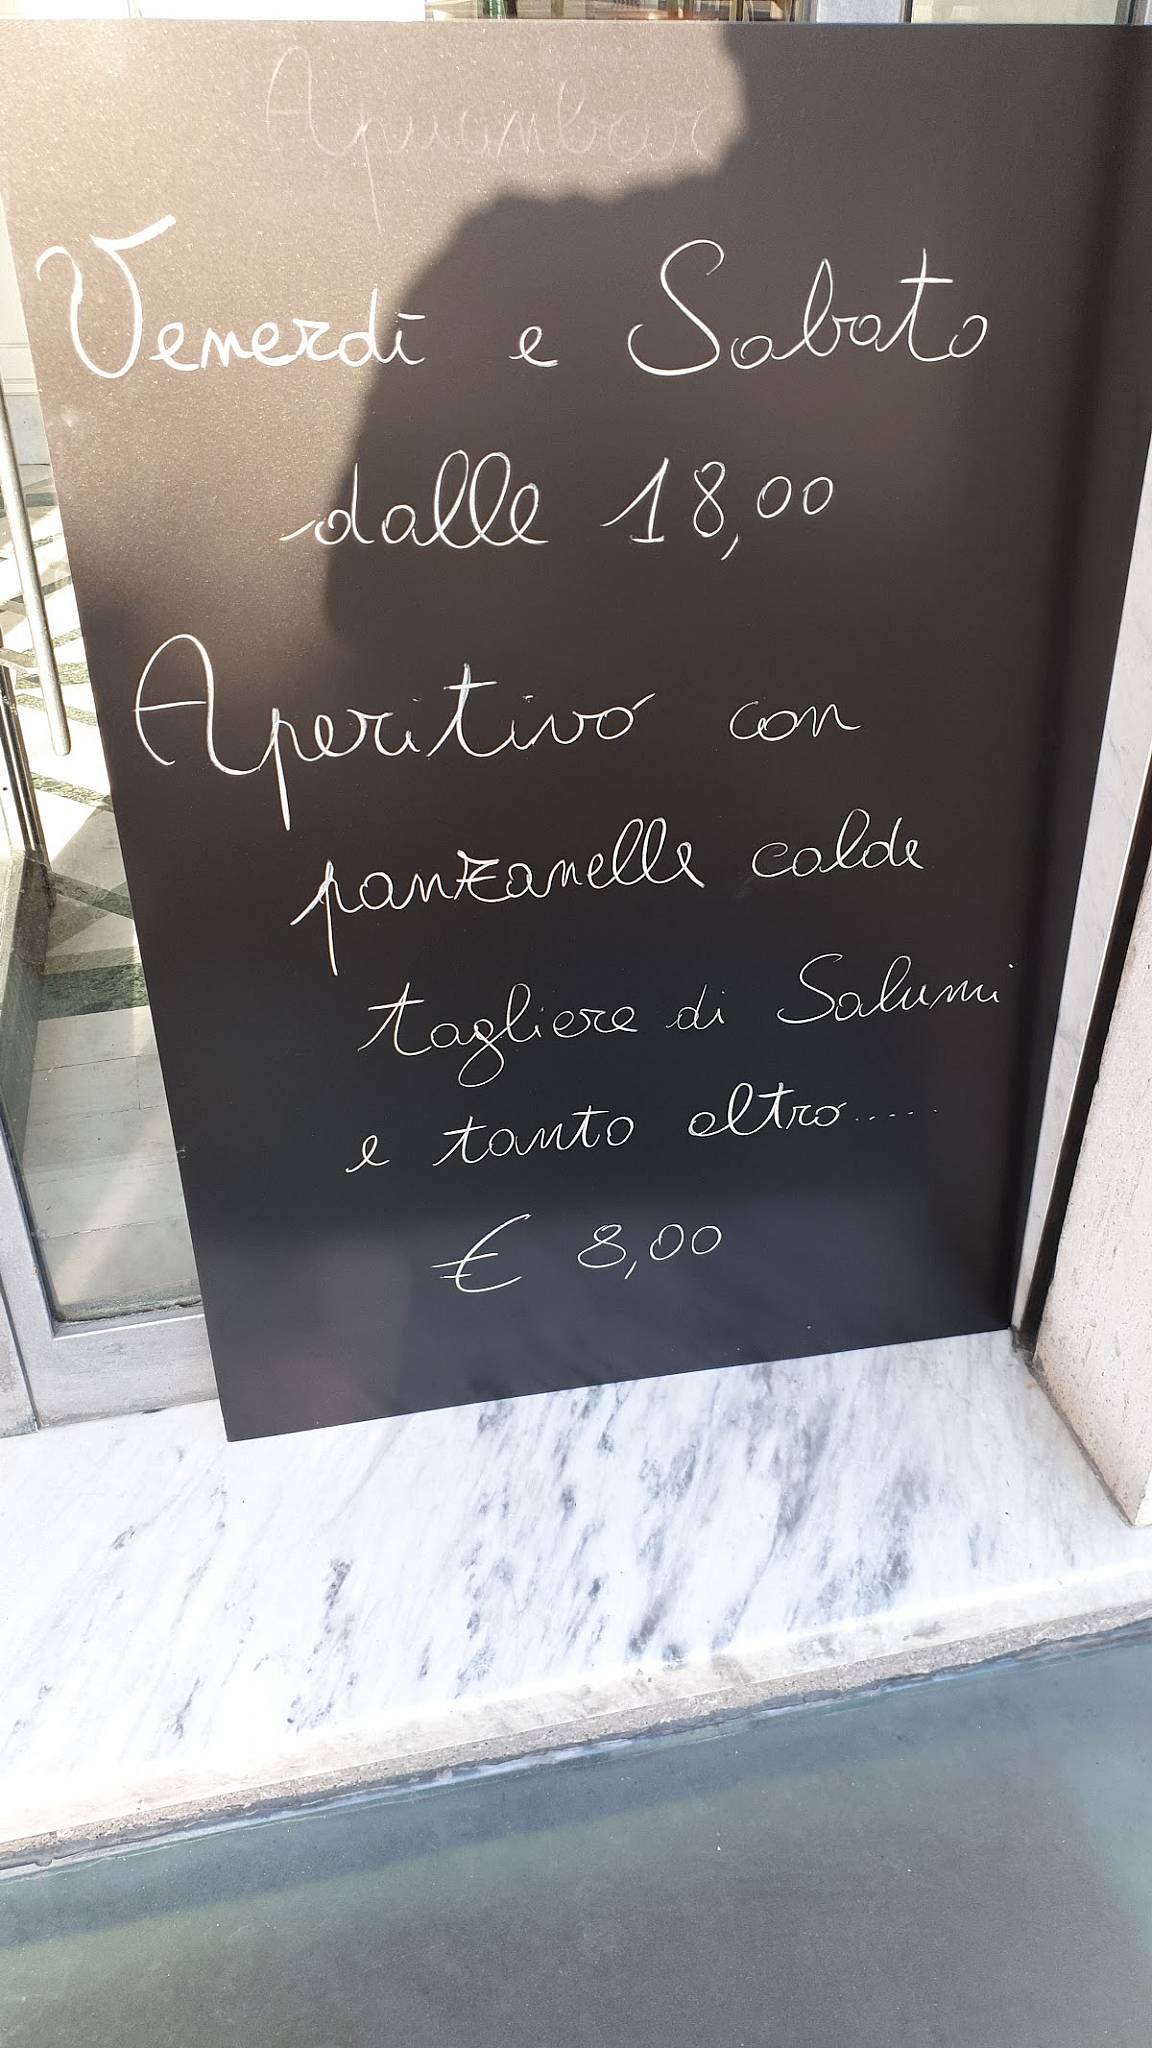 Apuanbar
Venerdì e Sabato
dalle 18,00
Aperitivo con
panzanelle calde
tagliere di Salumi
e tanto altro.....
€ 8,00